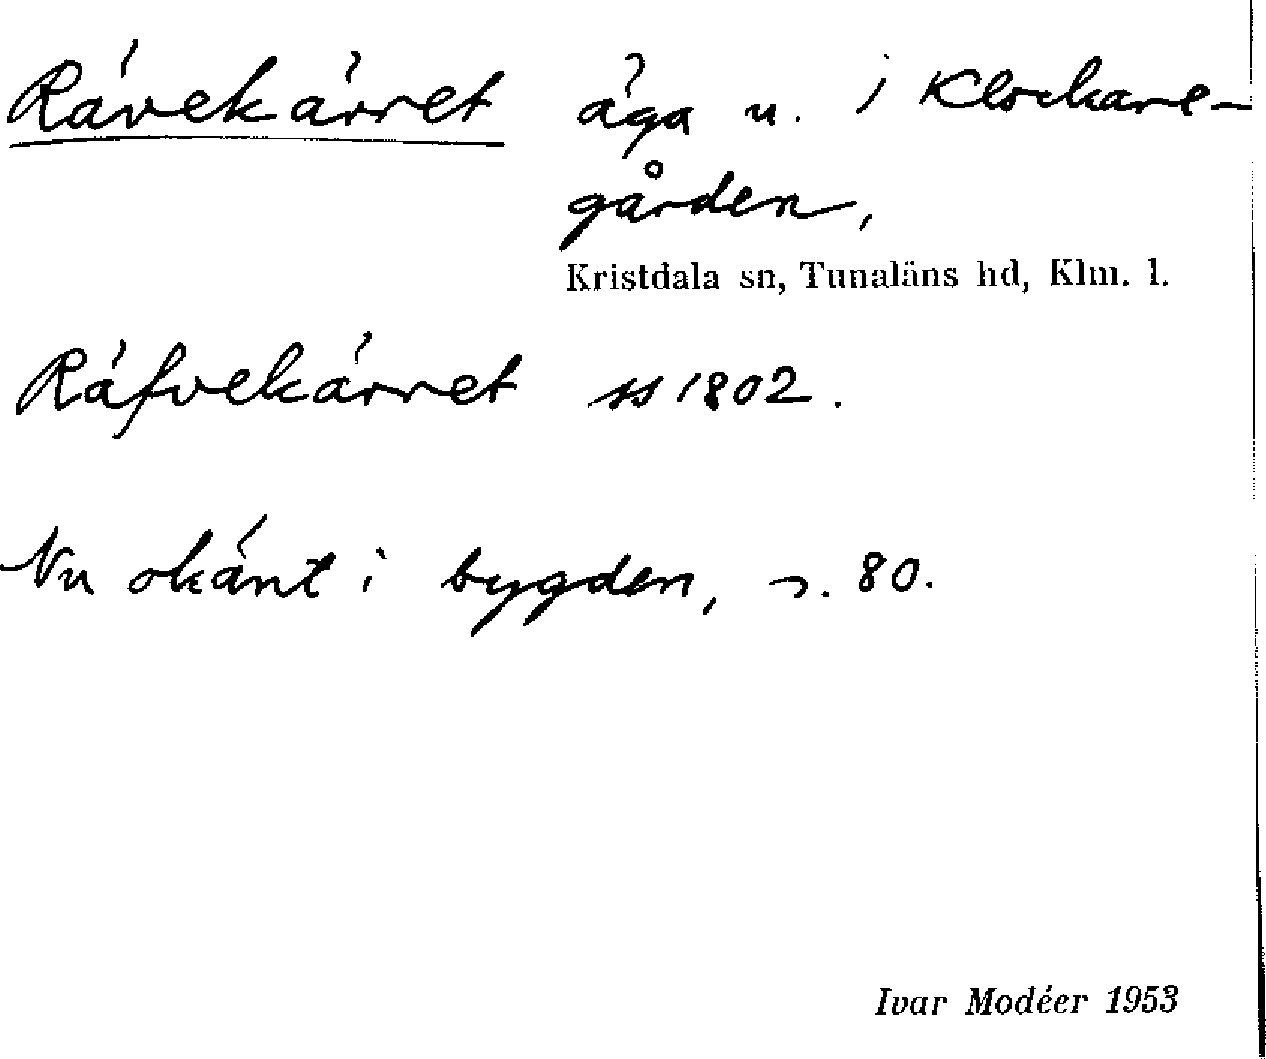 Rävekärret äga u. i Klockare-
gården,
Kristdala sn, Tunaläns hd, Klm. l.
Räfvekärret ss 1802.
Nu okänt i bygden, s. 80.
Ivar Modéer 1953